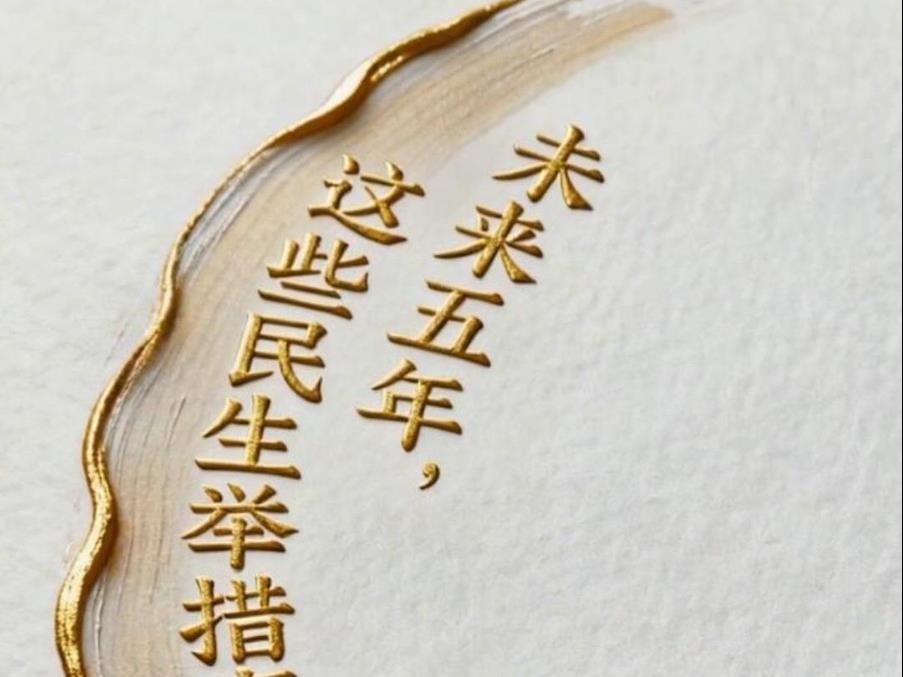 未来五年，
这些民生举措